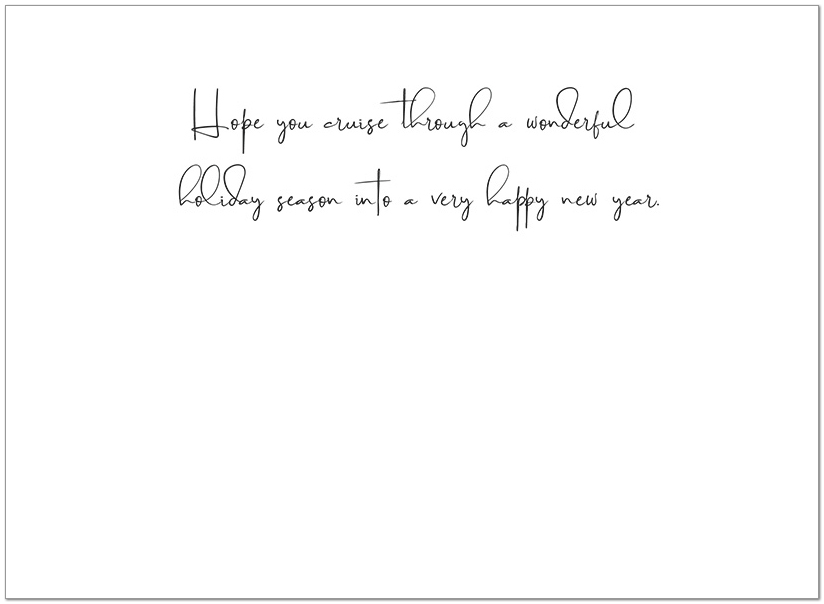 Hope you cruise through a wonderful
holiday season into a very happy new year.